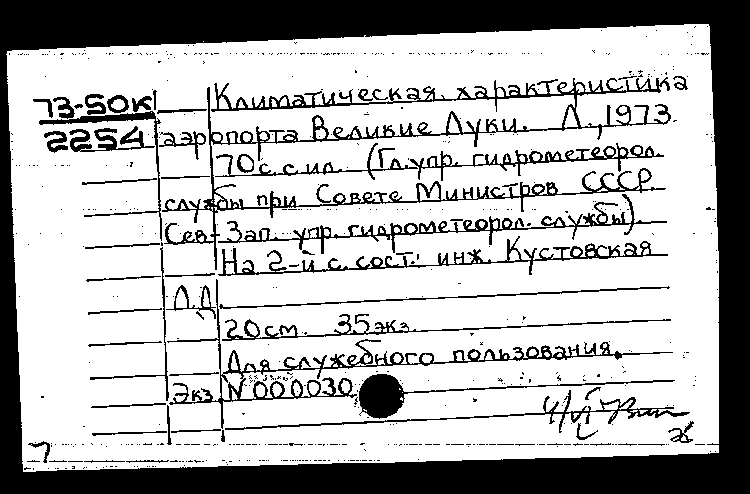 73-50к Климатическая характеристика
2254 аэропорта Великие Луки. Л., 1973.
70 с. с ил. (Гл. упр. гидрометеорол.
службы при Совете Министров СССР.
Сев-Зап. упр. гидрометеорол. службы).
На 2-й с. сост.: инж. Кустовская
Л.Д.
20 см. 35 экз.
Для служебного пользования.
Экз. N 000030
7